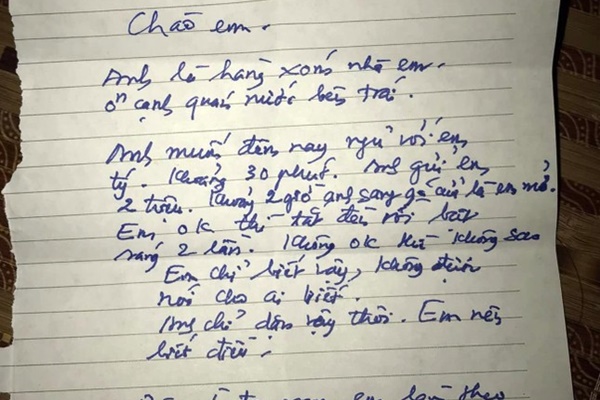 Chào em.
Anh là hàng xóm nhà em.
ở cạnh quán nước bên trái.
Anh muốn đêm nay ngủ với em
tý. Khoảng 30 phút. Anh gửi em
2 triệu. Khoảng 2 giờ anh sang gõ cửa là em mở.
Em ok thì tắt đèn rồi bật
sáng 2 lần. Không ok thì không sao
Em chỉ biết vậy, không được
nói cho ai biết.
Anh chỉ dặn vậy thôi. Em nên
biết điều.
em làm theo